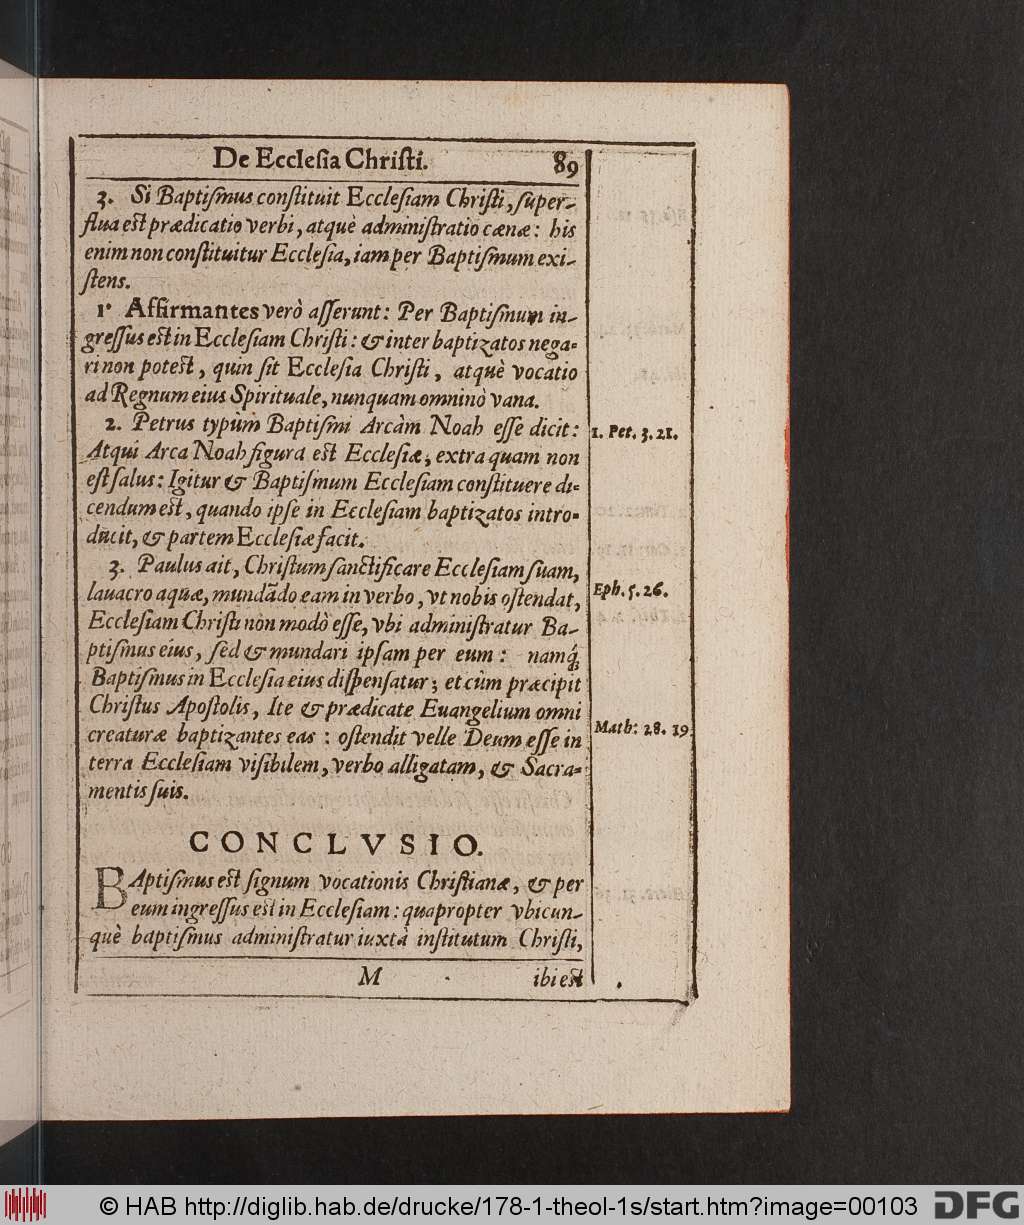 De Eccleſia Chriſti. 89
3. Si Baptiſmus conſtituit Eccleſiam Chriſti, ſuper-
flua eſt prædicatio verbi, atquè adminiſtratio cænæ: his
enim non conſtituitur Eccleſia, iam per Baptiſmum exi-
ſtens.
1. Affirmantes verò aſſerunt: Per Baptiſmum in-
greſſus eſt in Eccleſiam Chriſti: & inter baptizatos nega-
ri non poteſt, quin ſit Eccleſia Chriſti, atquè vocatio
ad Regnum eius Spirituale, nunquam omninò vana.
2. Petrus typùm Baptiſmi Arcàm Noah eſſe dicit:
1. Pet. 3. 21.
Atqui Arca Noah figura eſt Eccleſiæ, extra quam non
eſt ſalus: Igitur & Baptiſmum Eccleſiam conſtituere di-
cendum eſt, quando ipſe in Eccleſiam baptizatos intro-
ducit, & partem Eccleſiæ facit.
3. Paulus ait, Chriſtum ſanctificare Eccleſiam ſuam,
Eph. 5. 26.
lavacro aquæ, mundãdo eam in verbo, vt nobis oſtendat,
Eccleſiam Chriſti non modò eſſe, vbi adminiſtratur Ba-
ptiſmus eius, ſed & mundari ipſam per eum: namq́;
Baptiſmus in Eccleſia eius diſpenſatur; et cùm præcipit
Chriſtus Apoſtolis, Ite & prædicate Euangelium omni
Math: 28. 19
creaturæ baptizantes eas: oſtendit velle Deum eſſe in
terra Eccleſiam viſibilem, verbo alligatam, & Sacra-
mentis ſuis.
CONCLVSIO.
BAptiſmus eſt ſignum vocationis Chriſtianæ, & per
eum ingreſſus eſt in Eccleſiam: quapropter vbicun-
què baptiſmus adminiſtratur iuxtà inſtitutum Chriſti,
M ibi eſt
© HAB http://diglib.hab.de/drucke/178-1-theol-1s/start.htm?image=00103
DFG